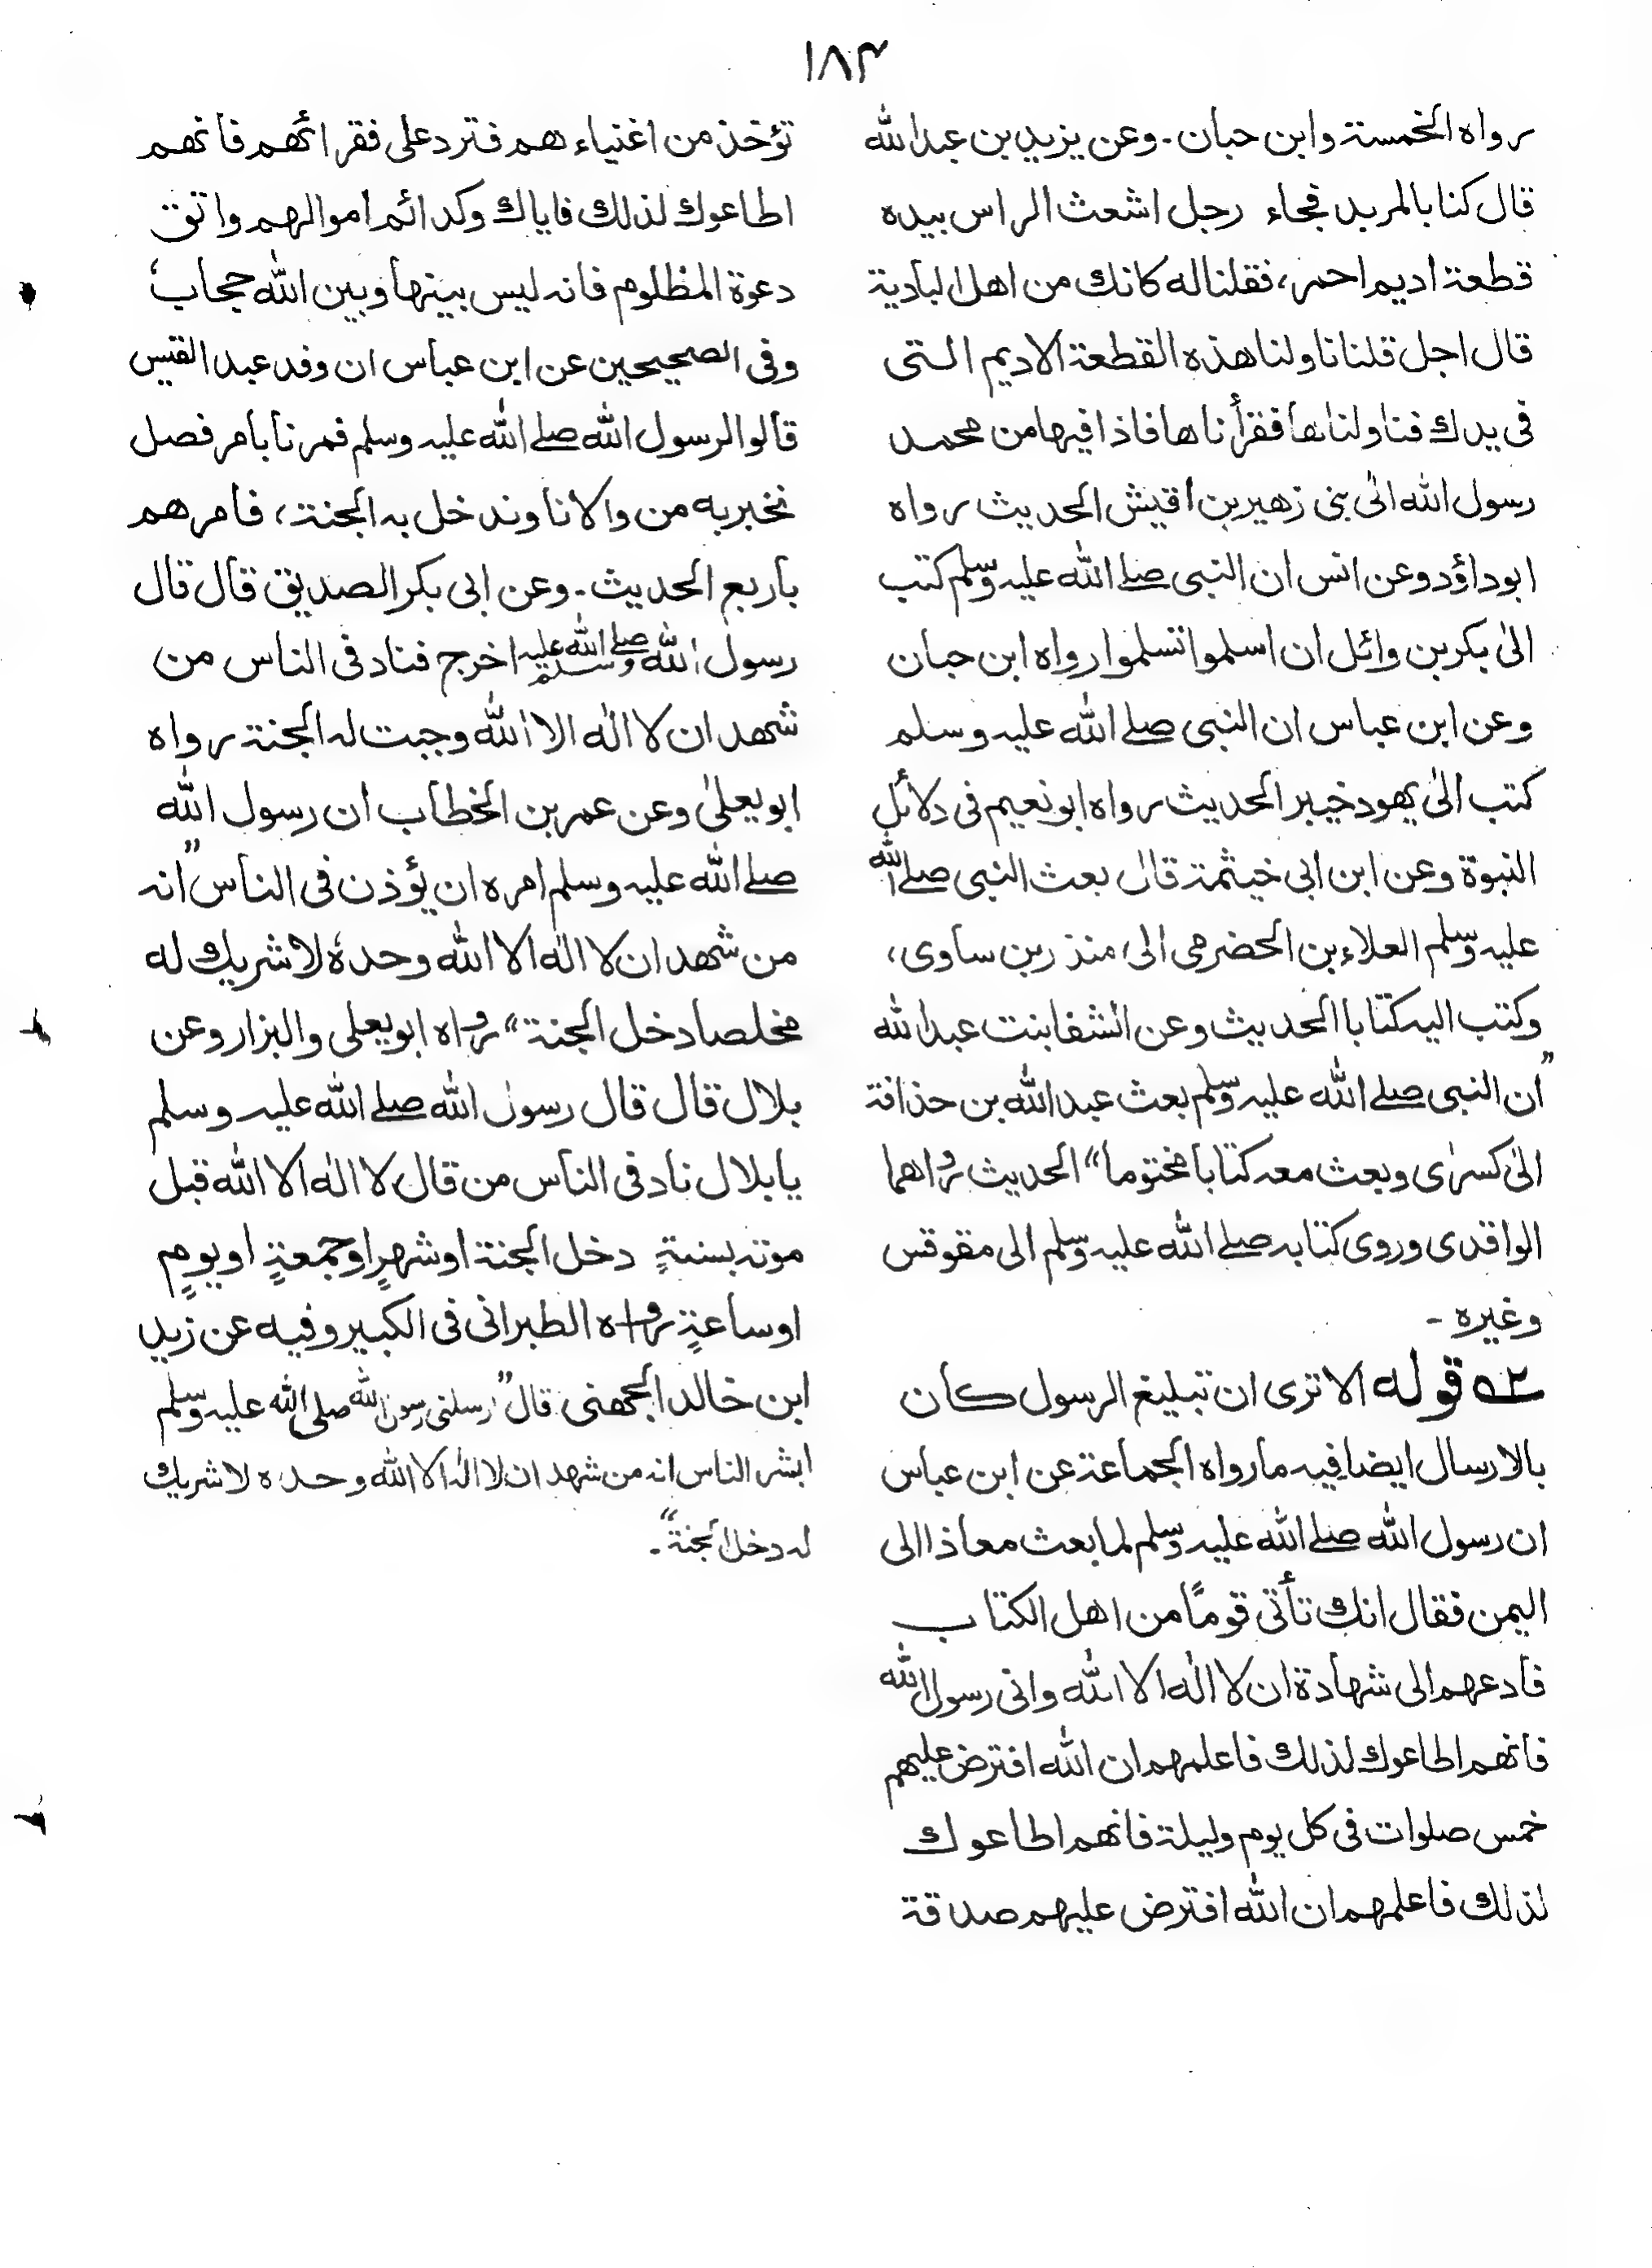 ۱۸۴
رواه الخمسة وابن حبان۔ وعن يزيد بن عبدالله
قال كنا بالمربد فجاء رجل اشعث الراس بيده
قطعة اديم احمر، فقلنا له كانك من اهل البادية
قال اجل قلنا ناولنا هذه القطعة الاديم التى
فى يدك فناولناها فقرأناها فاذا فيها من محمد
رسول الله الىٰ بنى زهير بن اقيش الحديث رواه
ابوداؤد وعن انس ان النبى صلے الله عليه وسلم كتب
الىٰ بكر بن وائل ان اسلموا تسلموا رواه ابن حبان
وعن ابن عباس ان النبى صلے الله عليه وسلم
كتب الىٰ يهود خيبر الحديث رواه ابو نعيم فى دلائل
النبوة وعن ابن ابى خيثمة قال بعث النبى صلے الله
عليه وسلم العلاء بن الحضرمى الىٰ منذر بن ساوى،
وكتب اليه كتابا الحديث وعن الشفا بنت عبدالله
”ان النبى صلے الله عليه وسلم بعث عبد الله بن حذافة
الىٰ كسرٰى وبعث معه كتابا مختوما“ الحديث رواهما
الواقدى وروى كتابه صلے الله عليه وسلم الى مقوقس
وغيره -
۲ے قوله الا ترى ان تبليغ الرسول كان
بالارسال ايضا فيه ما رواه الجماعة عن ابن عباس
ان رسول الله صلے الله عليه وسلم لما بعث معاذا الى
اليمن فقال انك تأتى قومًا من اهل الكتاب
فادعهم الى شهادة ان لا الٰه الا الله وانى رسول الله
فانهم اطاعوك لذلك فاعلمهم ان الله افترض عليهم
خمس صلوات فى كل يوم وليلة فانهم اطاعوك
لذلك فاعلمهم ان الله افترض عليهم صدقة
تؤخذ من اغنياء هم فترد على فقرائهم فانهم
اطاعوك لذلك فاياك وكدائم اموالهم واتق
دعوة المظلوم فانه ليس بينها وبين الله حجاب
وفى الصحيحين عن ابن عباس ان وفد عبد القيس
قالوا لرسول الله صلے الله عليه وسلم فمرنا بامر فصل
نخبر به من والانا وندخل به الجنة، فامرهم
باربع الحديث۔ وعن ابى بكر الصديق قال قال
رسول الله صلے الله عليه وسلم اخرج فناد فى الناس من
شهد ان لا الٰه الا الله وجبت له الجنة رواه
ابو يعلىٰ وعن عمر بن الخطاب ان رسول الله
صلے الله عليه وسلم امره ان يؤذن فى الناس ”انه
من شهد ان لا الٰه الا الله وحدهٗ لا شريك له
مخلصا دخل الجنة“ رواه ابو يعلى والبزار وعن
بلال قال قال رسول الله صلے الله عليه وسلم
يا بلال ناد فى الناس من قال لا الٰه الا الله قبل
موته بسنةٍ دخل الجنة او شهرٍ او جمعةٍ او يومٍ
او ساعةٍ رواه الطبرانى فى الكبير وفيه عن زيد
ابن خالد الجهنى قال ”ارسلنى رسول الله صلى الله عليه وسلم
ابشر الناس انه من شهد ان لا الٰه الا الله وحده لا شريك
له دخل الجنة“۔